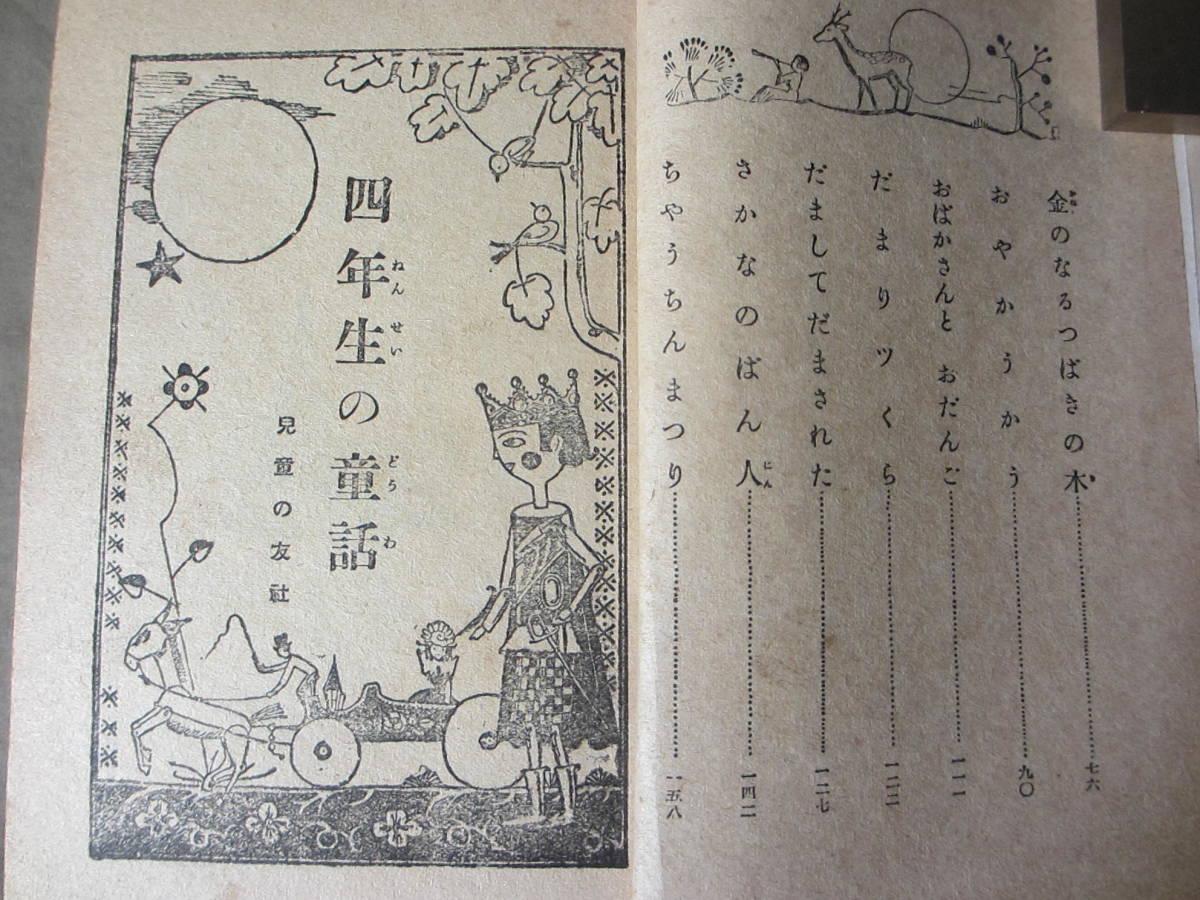 金のなるつばきの木……七六
おやかうかう……九〇
おばかさんと おだんご……一一一
だまりツくら……一二二
だましてだまされた……一二七
さかなのばん人……一四二
ちやうちんまつり……一五八
四年生の童話
兒童の友社